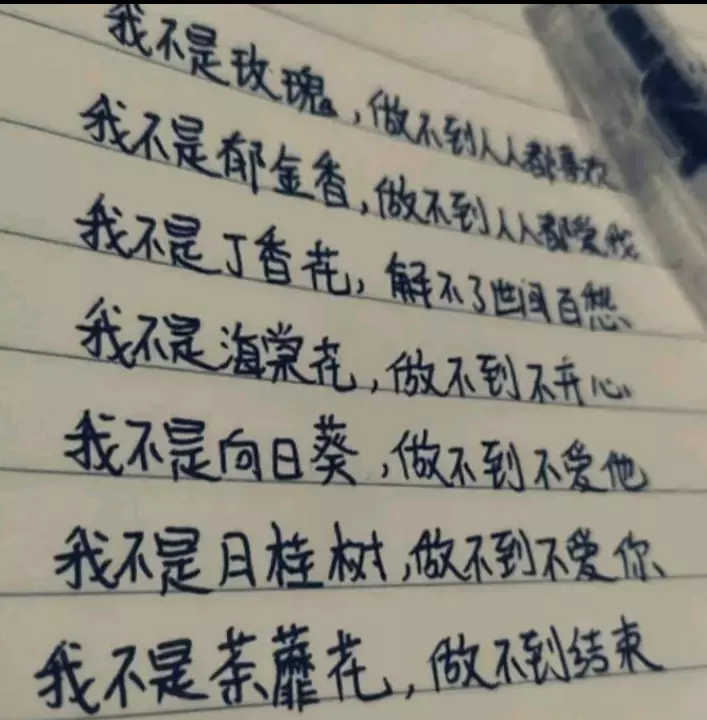 我不是玫瑰，做不到人人都喜欢
我不是郁金香，做不到人人都爱我
我不是丁香花，解不了世间百愁、
我不是海棠花，做不到不开心
我不是向日葵，做不到不爱他
我不是日桂树，做不到不爱你、
我不是荼蘼花，做不到结束